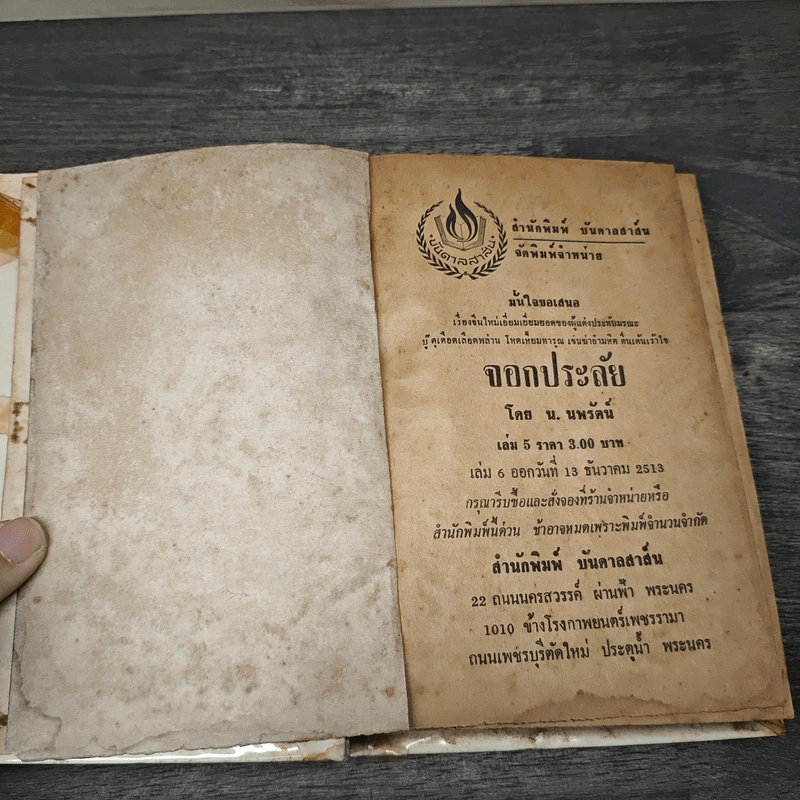 บันดาลสาส์น
สำนักพิมพ์ บันดาลสาส์น
จัดพิมพ์จำหน่าย
มั่นใจขอเสนอ
เรื่องจีนใหม่เอี่ยมเยี่ยมยอดของผู้แต่งประทับมรณะ
บู๊ดุเดือดเลือดพล่าน โหดเหี้ยมทารุณ เข่นฆ่าอำมหิต ตื่นเต้นเร้าใจ
จอกประลัย
โดย น. นพรัตน์
เล่ม 5 ราคา 3.00 บาท
เล่ม 6 ออกวันที่ 13 ธันวาคม 2513
กรุณารีบซื้อและสั่งจองที่ร้านจำหน่ายหรือ
สำนักพิมพ์นี้ด่วน ช้าอาจหมดเพราะพิมพ์จำนวนจำกัด
สำนักพิมพ์ บันดาลสาส์น
22 ถนนนครสวรรค์ ผ่านฟ้า พระนคร
1010 ข้างโรงภาพยนตร์เพชรรามา
ถนนเพชรบุรีตัดใหม่ ประตูน้ำ พระนคร